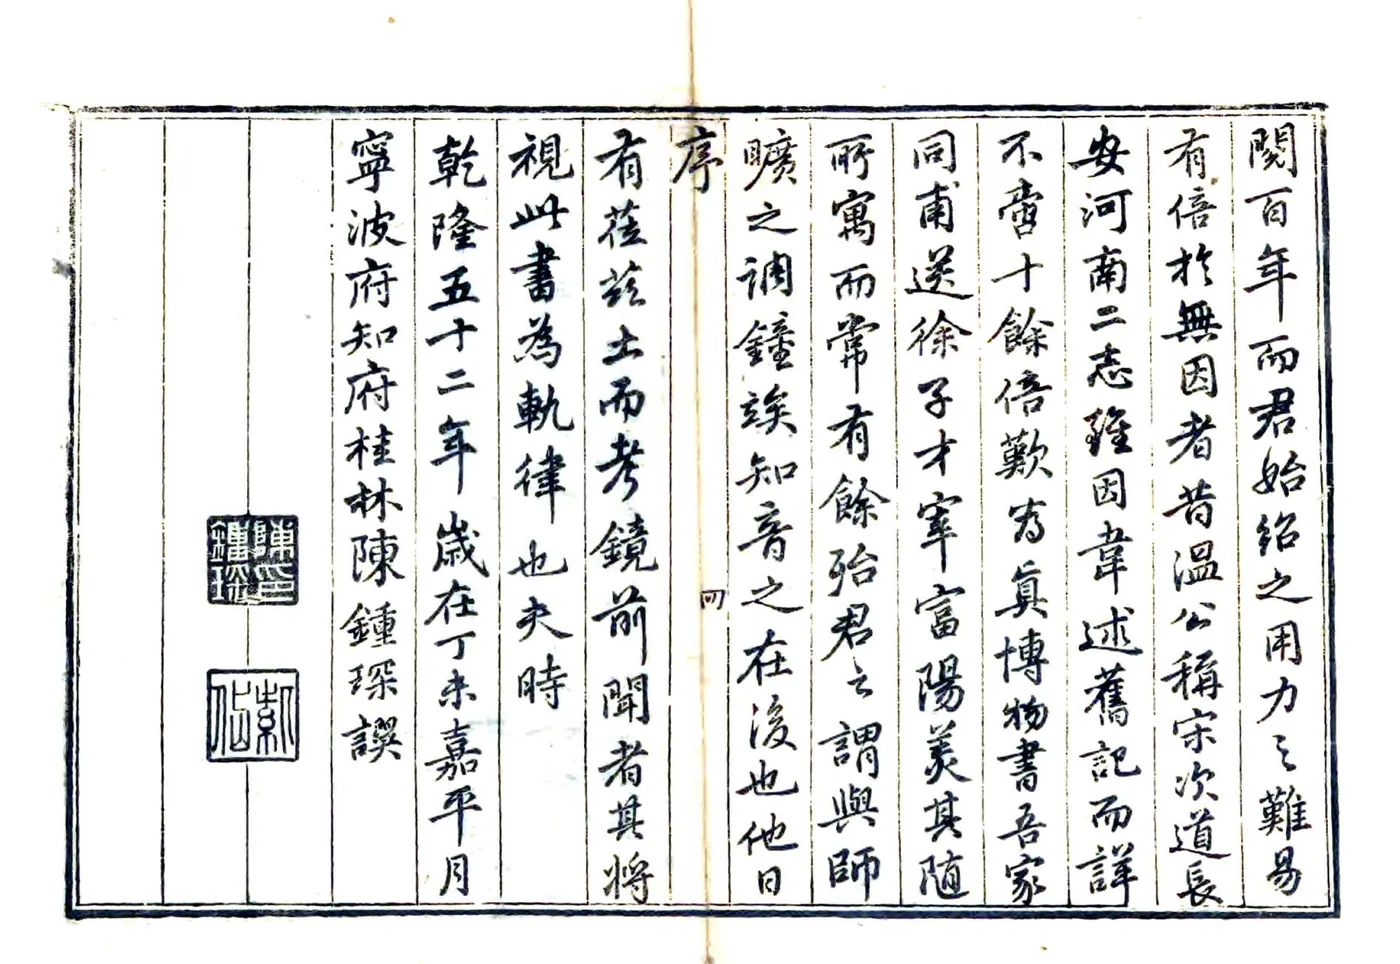 閱百年而君始紹之用力之難易
有倍於無因者昔溫公稱宋次道長
安河南二志雖因韋述舊記而詳
不啻十餘倍歎為眞博物書吾家
同甫送徐子才宰富陽美其隨
所寓而常有餘殆君之謂與師
曠之調鐘竢知音之在後也他日
序
四
有莅茲土而考鏡前聞者其將
視此書為軌律也夫時
乾隆五十二年歲在丁未嘉平月
寧波府知府桂林陳鍾琛譔
陳印鍾琛
紫